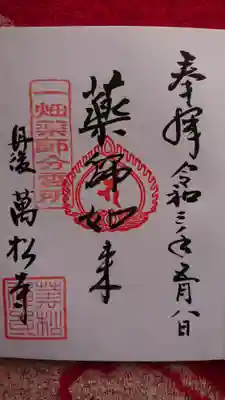 奉拝
令和三年五月八日
薬師如来
一畑薬師分霊所
丹後
萬松寺